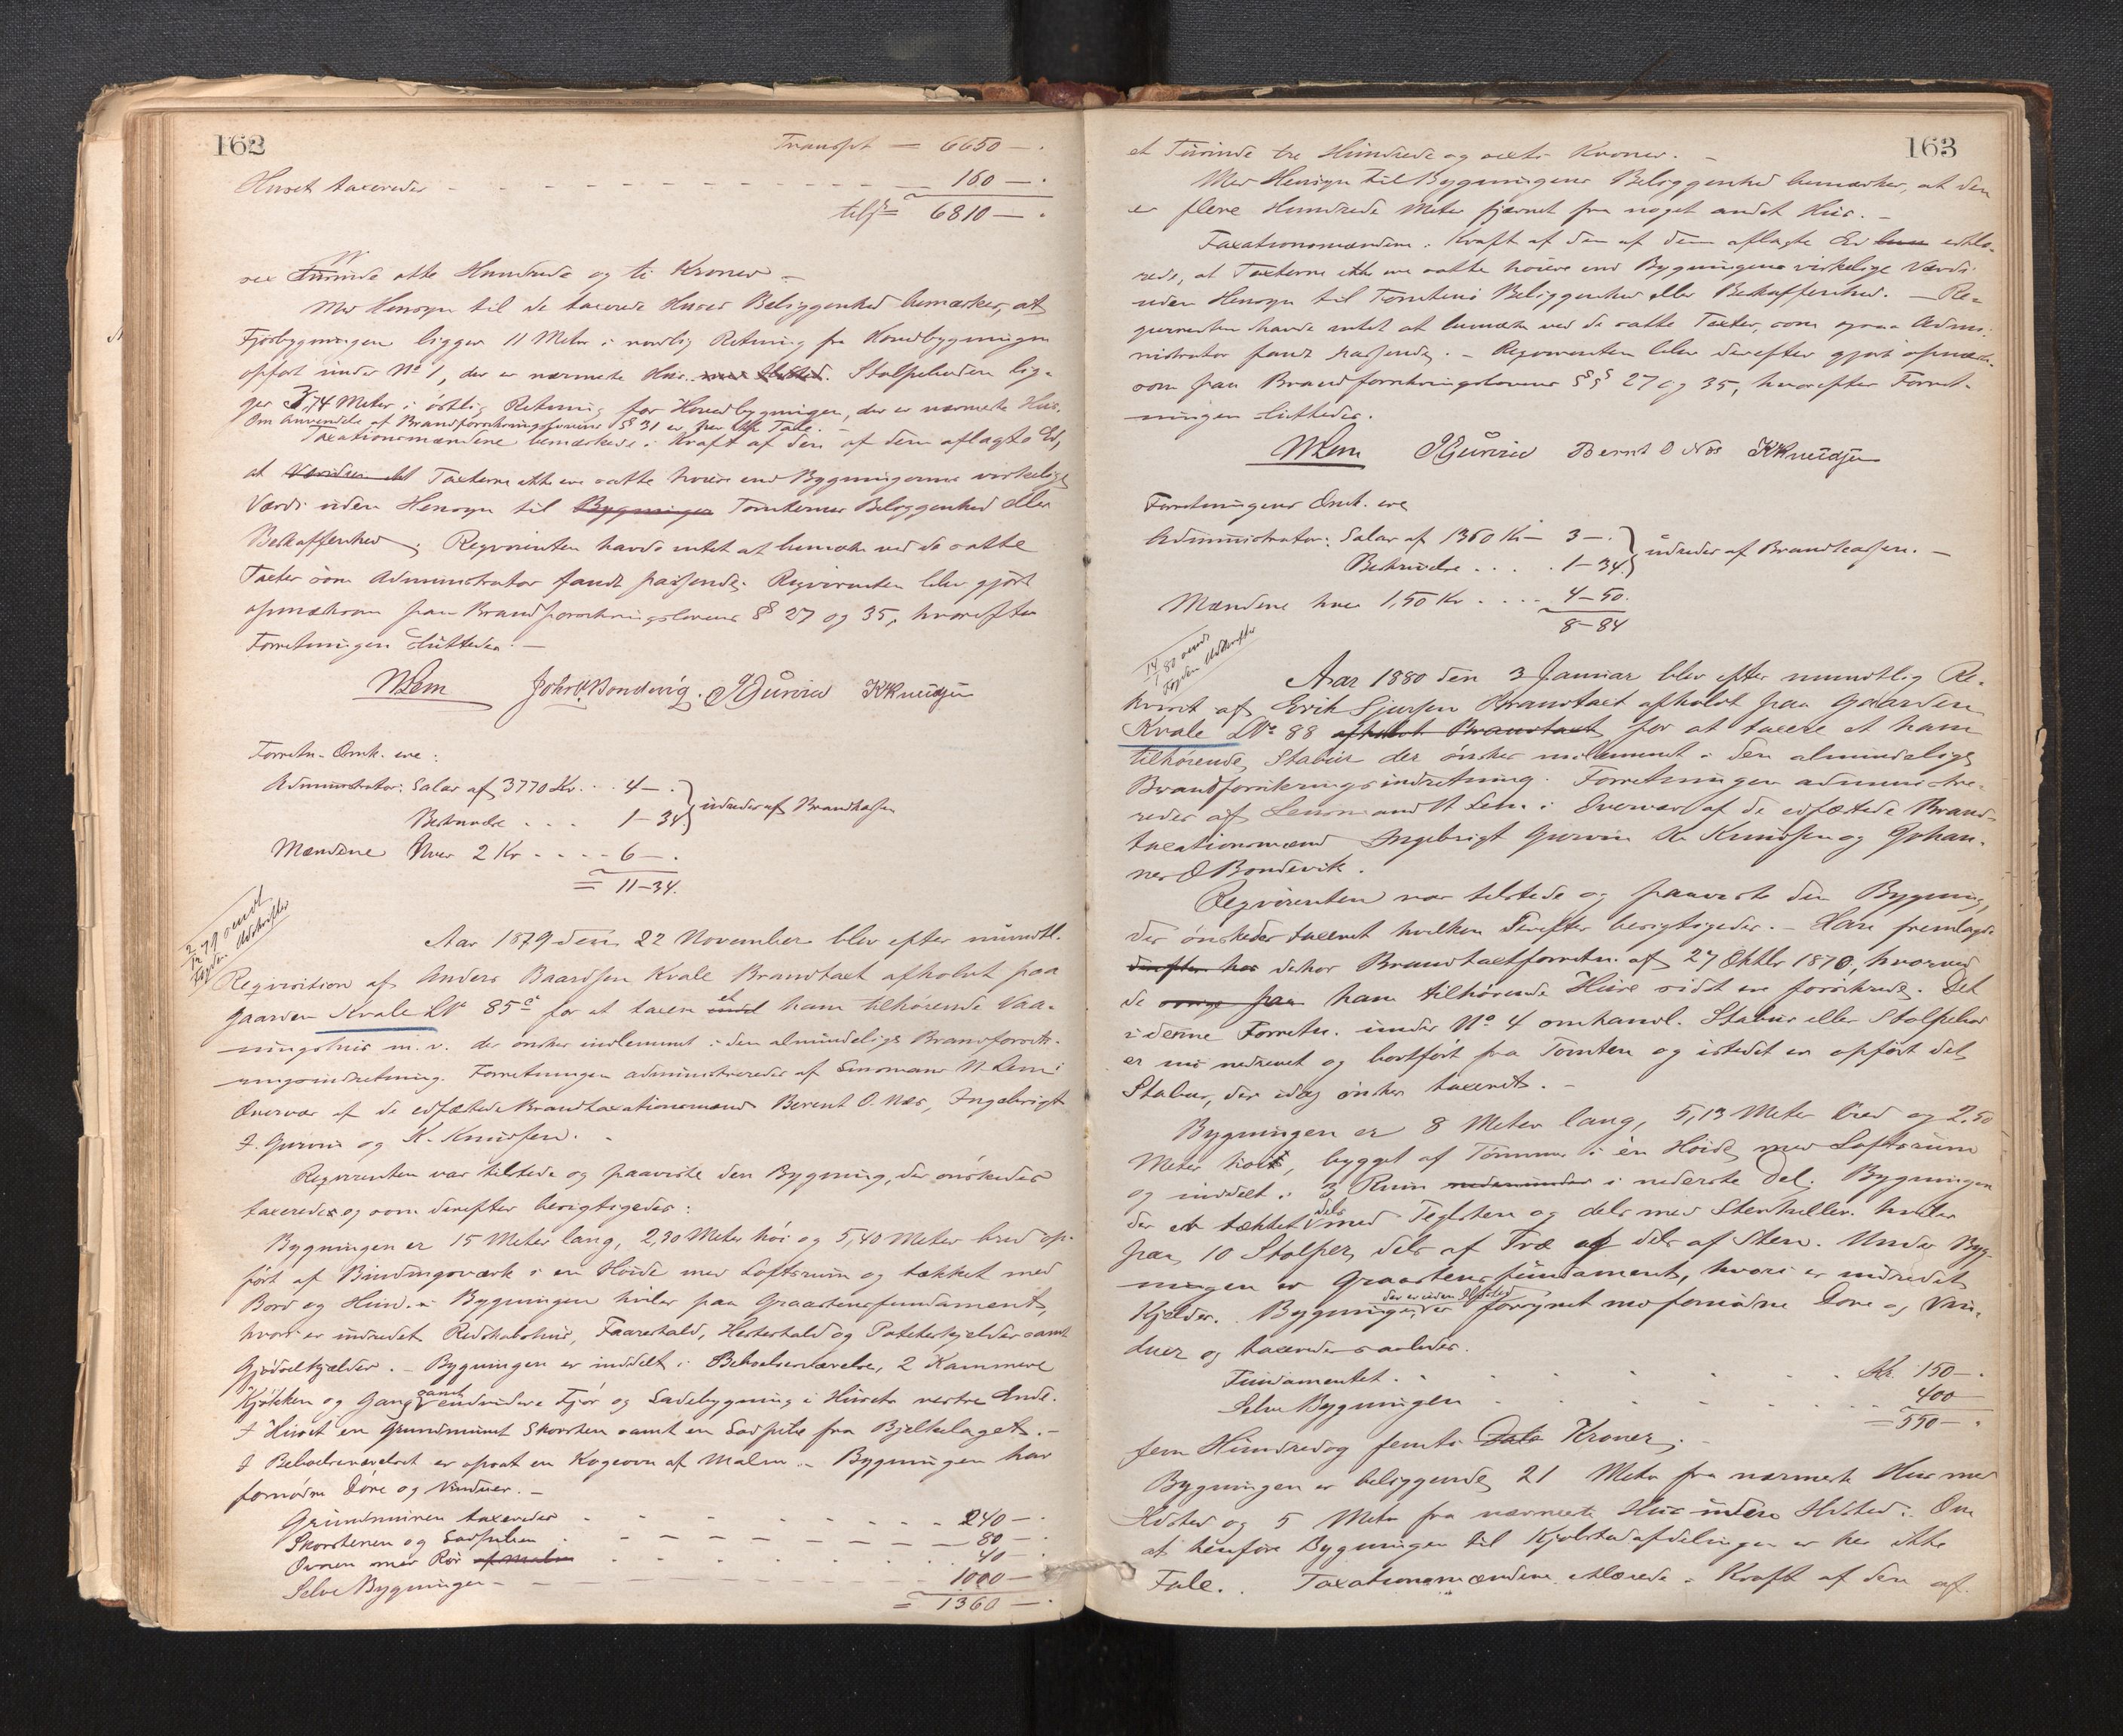 162
Transpt = 6650 — .
Huset taxeredes - - - - - 160 — .
tilf = 6810 — .
sex Tusinde otte Hundrede og ti Kroner —
Med Hensyn til de taxerede Huses Beliggenhed bemærkes, at
Fjøsbygningen ligger 11 Meter i nordlig Retning fra Hovedbygningen
opført under No 1, der er nærmeste Hus. Stolpeboden lig-
ger 3,74 Meter i østlig Retning for Hovedbygningen, der er nærmeste Hus.
Om Anvendelse af Brandforsikringslovens § 31 er her ikke Tale. —
Taxationsmændene bemærkede i Kraft af den af dem aflagte Ed,
at Taxterne ikke ere satte høiere end Bygningernes virkelige
Værdi uden Hensyn til Bygninger Tomternes Beliggenhed eller
Beskaffenhed. Reqvirenten havde intet at bemærke ved de satte
Taxter som Administrator fandt passende. Reqvirenten blev gjort
opmærksom paa Brandforsikringslovens § 27 og 35, hvorefter
Forretningen sluttedes. —
NLem Johs O. Bondevig. IGurvin KKnudsen
Forretn. Omk. ere:
Administrator: Salar af 3770 Kr. . . 4 — .
Beskrivelse . . . 1 — 34. udredes af Brandkassen
Mændene hver 2 Kr - - - - 6 — .
= 11 — 34.
2/12 79 sendt
Fogden Udskrifter
Aar 1879 den 22 November blev efter mundtl.
Reqvisition af Anders Baardsen Kvale Brandtaxt afholdt paa
Gaarden Kvale LN 85c for at taxere et ham tilhørende Vaa-
ningshus m. v. der ønskes indlemmet i den almindelige Brandforsik-
ringsindretning. Forretningen administreredes af Lensmand N. Lem i
Overvær af de edfæstede Brandtaxationsmænd Berent O. Næs, Ingebrigt
I. Gurvin og K. Knudsen. —
Reqvirenten var tilstede og paaviste den Bygning, der ønskedes
taxeredes og som derefter besigtigedes:
Bygningen er 15 Meter lang, 2,30 Meter høi og 5,40 Meter bred op-
ført af Bindingsværk i en Høide med Loftsrum og tækket med
Bord og Hun. Bygningen hviler paa Graastensfundament,
hvori er indredet Redskabshus, Faarestald, Hestestald og Potetkjelder samt
Gjødselkjælder. — Bygningen er inddelt i Beboelsesværelse, 2 Kammere
Kjøkken og Gang samt endvidere Fjøs og Ladebygning i Husets vestre Ende.
I Huset en grundmuret Skorsten samt en Ladpibe fra Bjelkelaget. —
I Beboelsesværelset er opsat en Kogeovn af Malm. — Bygningen har
fornødne Døre og Vinduer. —
Grundmuren taxeredes - - - - 240 — .
Skorstenen og Ladpiben - - - - 80 — .
Ovnen med Rør af Malm - - - - 40 — .
Selve Bygningen - - - - 1000 — .
= 1360 — .
163
et Tusinde tre Hundrede og sexti Kroner. —
Med Hensyn til Bygningens Beliggenhed bemærkes, at den
er flere Hundrede Meter fjernet fra noget andet Hus. —
Taxationsmændene i Kraft af den af dem aflagte Ed erklæ-
rede, at Taxterne ikke ere satte høiere end Bygningens virkelige Værdi
uden Hensyn til Tomtens Beliggenhed eller Beskaffenhed. — Re-
qvirenten havde intet at bemærke ved de satte Taxter, som ogsaa Admi-
nistrator fandt passende. — Reqvirenten blev derefter gjort opmærk-
som paa Brandforsikringslovens §§ 27 og 35, hvorefter Forret-
ningen sluttedes.
NLem IGurvin Bernt O Næs KKnudsen
Forretningens Omk. ere
Administrator: Salar af 1360 Kr — 3 — .
Beskrivelse . . . . 1 — 34. udredes af Brandkassen. —
Mændene hver 1,50 Kr . . . . 4 — 50.
8 — 84
14/1 80 sendt
Fogden Udskrifter
Aar 1880 den 3 Januar blev efter mundtlig Re-
kvisit af Erik Sjursen Brandtaxt afholdt paa Gaarden
Kvale LNo 88 afholdt Brandtaxt for at taxere et ham
tilhørende Stabur der ønskes indlemmet i den almindelige
Brandforsikringsindretning. Forretningen administre-
redes af Lensmand N Lem i Overvær af de edfæstede Brand-
taxationsmænd Ingebrigt Gurvin K. Knudsen og Johan-
nes O Bondevik.
Reqvirenten var tilstede og paaviste den Bygning,
der ønskedes taxeret hvilken derefter besigtigedes. — Han fremlagde
derefter har dehos Brandtaxtforretn. af 27 Oktbr 1870, hvorved
de ham tilhørende Huse sidst ere forsikrede. Det
i denne Forretn. under No 4 omhandl. Stabur eller Stolpebod
er nu nedrevet og bortført fra Tomten og istedet er opført det
Stabur, der idag ønskes taxeret. —
Bygningen er 8 Meter lang, 5,13 Meter bred og 2,50
Meter høi, bygget af Tømmer i en Høide med Loftsrum
og inddelt i 3 Rum i nederste Del. Bygningen
der er tækket dels med Teglsten og dels med Stenheller hviler
paa 10 Stolper, dels af Træ og dels af Sten. Under Byg-
ningen er Graastensfundament, hvori er indredet
Kjelder. Bygningen, der er uden Ildsted er forsynet med fornødne Døre og Vin-
duer og taxeredes saaledes.
Fundamentet . . . . . Kr. 150 — .
Selve Bygningen . . . . . 400
= 550 — .
fem Hundred og femti Kroner. —
Bygningen er beliggende 21 Meter fra nærmeste Hus med
Ildsted og 5 Meter fra nærmeste Hus uden Ildsted. Om
at henføre Bygningen til Kjøbstadafdelingen er her ikke
Tale. Taxationsmændene erklærede i Kraft af den af